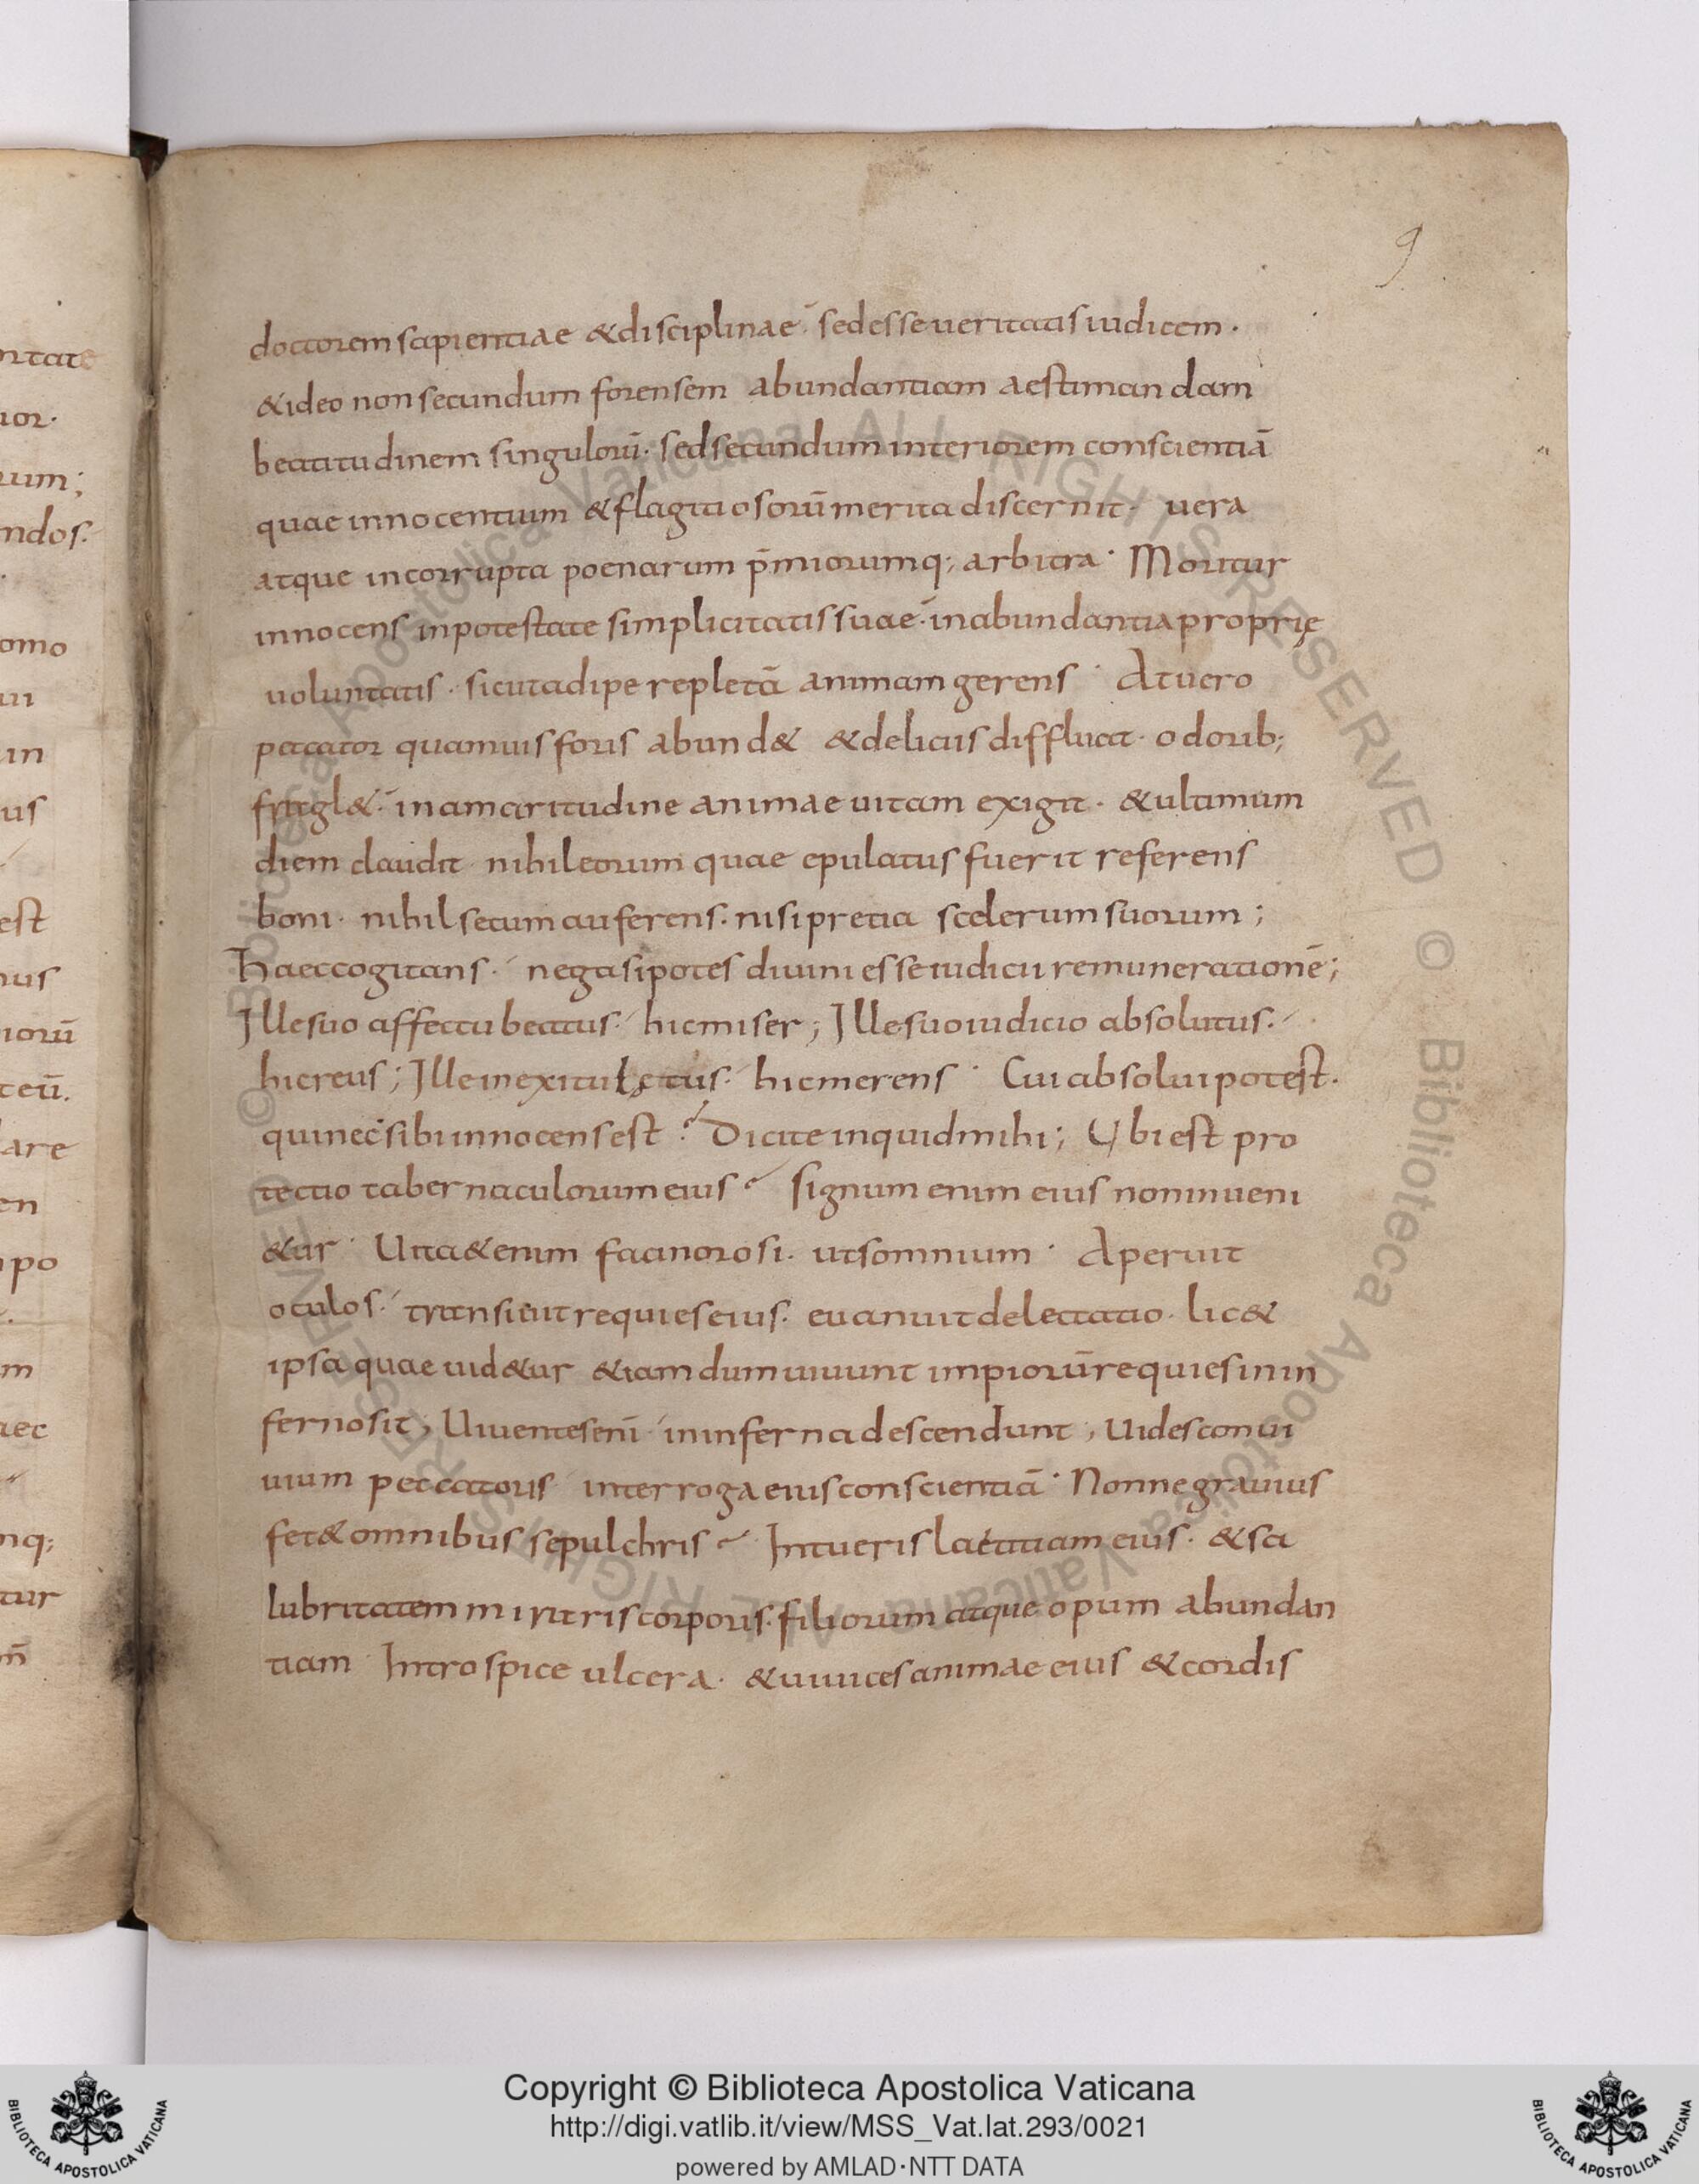 9
doctorem sapientiae & disciplinae. sed esse ueritatis iudicem.
& ideo non secundum forensem abundantiam aestimandam
beatitudinem singulorū. sed secundum interiorem conscientiā
quae innocentium & flagitiosorū merita discernit. uera
atque incorrupta poenarum p̄miorumq; arbitra. Moritur
innocens in potestate simplicitatis suae. in abundantia proprię
uoluntatis. sicut adipe repletā animam gerens. At uero
peccator quamuis foris abund& & deliciis diffluat. odorib;
fragl&. in amaritudine animae uitam exigit. & ultimum
diem claudit. nihil eorum quae epulatus fuerit referens
boni. nihil secum auferens. nisi pretia scelerum suorum;
Haec cogitans. nega si potes diuini esse iudicii remunerationē;
Ille suo affectu beatus. hic miser; Ille suo iudicio absolutus.
hic reus; Ille in exitu lętus. hic merens. Cui absolui potest.
qui nec sibi innocens est? Dicite inquid mihi; Ubi est pro
tectio tabernaculorum eius? signum enim eius non inueni
&ur. Uita & enim facinorosi. ut somnium. Aperuit
oculos. transiuit requies eius. euanuit delectatio. lic&
ipsa quae uid&ur &iam dum uiuunt impiorū requies in in
ferno sit; Uiuentes enī in inferna descendunt; Uides conui
uium peccatoris interroga eius conscientiā. Nonne grauius
fet& omnibus sepulchris? Intueris laetitiam eius. & sa
lubritatem miraris corporis. filiorum atque opum abundan
tiam. Introspice ulcera. & uiuices animae eius & cordis
ntate
ior.
rum;
ndos.
omo
in
us
est
nus
iorū
teū.
are
en
po
m
aec
nq;
tur
n̄
© Biblioteca Apostolica Vaticana ALL RIGHTS RESERVED © Biblioteca Apostolica Vaticana ALL RIGHTS RESERVED
BIBLIOTECA APOSTOLICA VATICANA
Copyright © Biblioteca Apostolica Vaticana
http://digi.vatlib.it/view/MSS_Vat.lat.293/0021
powered by AMLAD·NTT DATA
BIBLIOTECA APOSTOLICA VATICANA